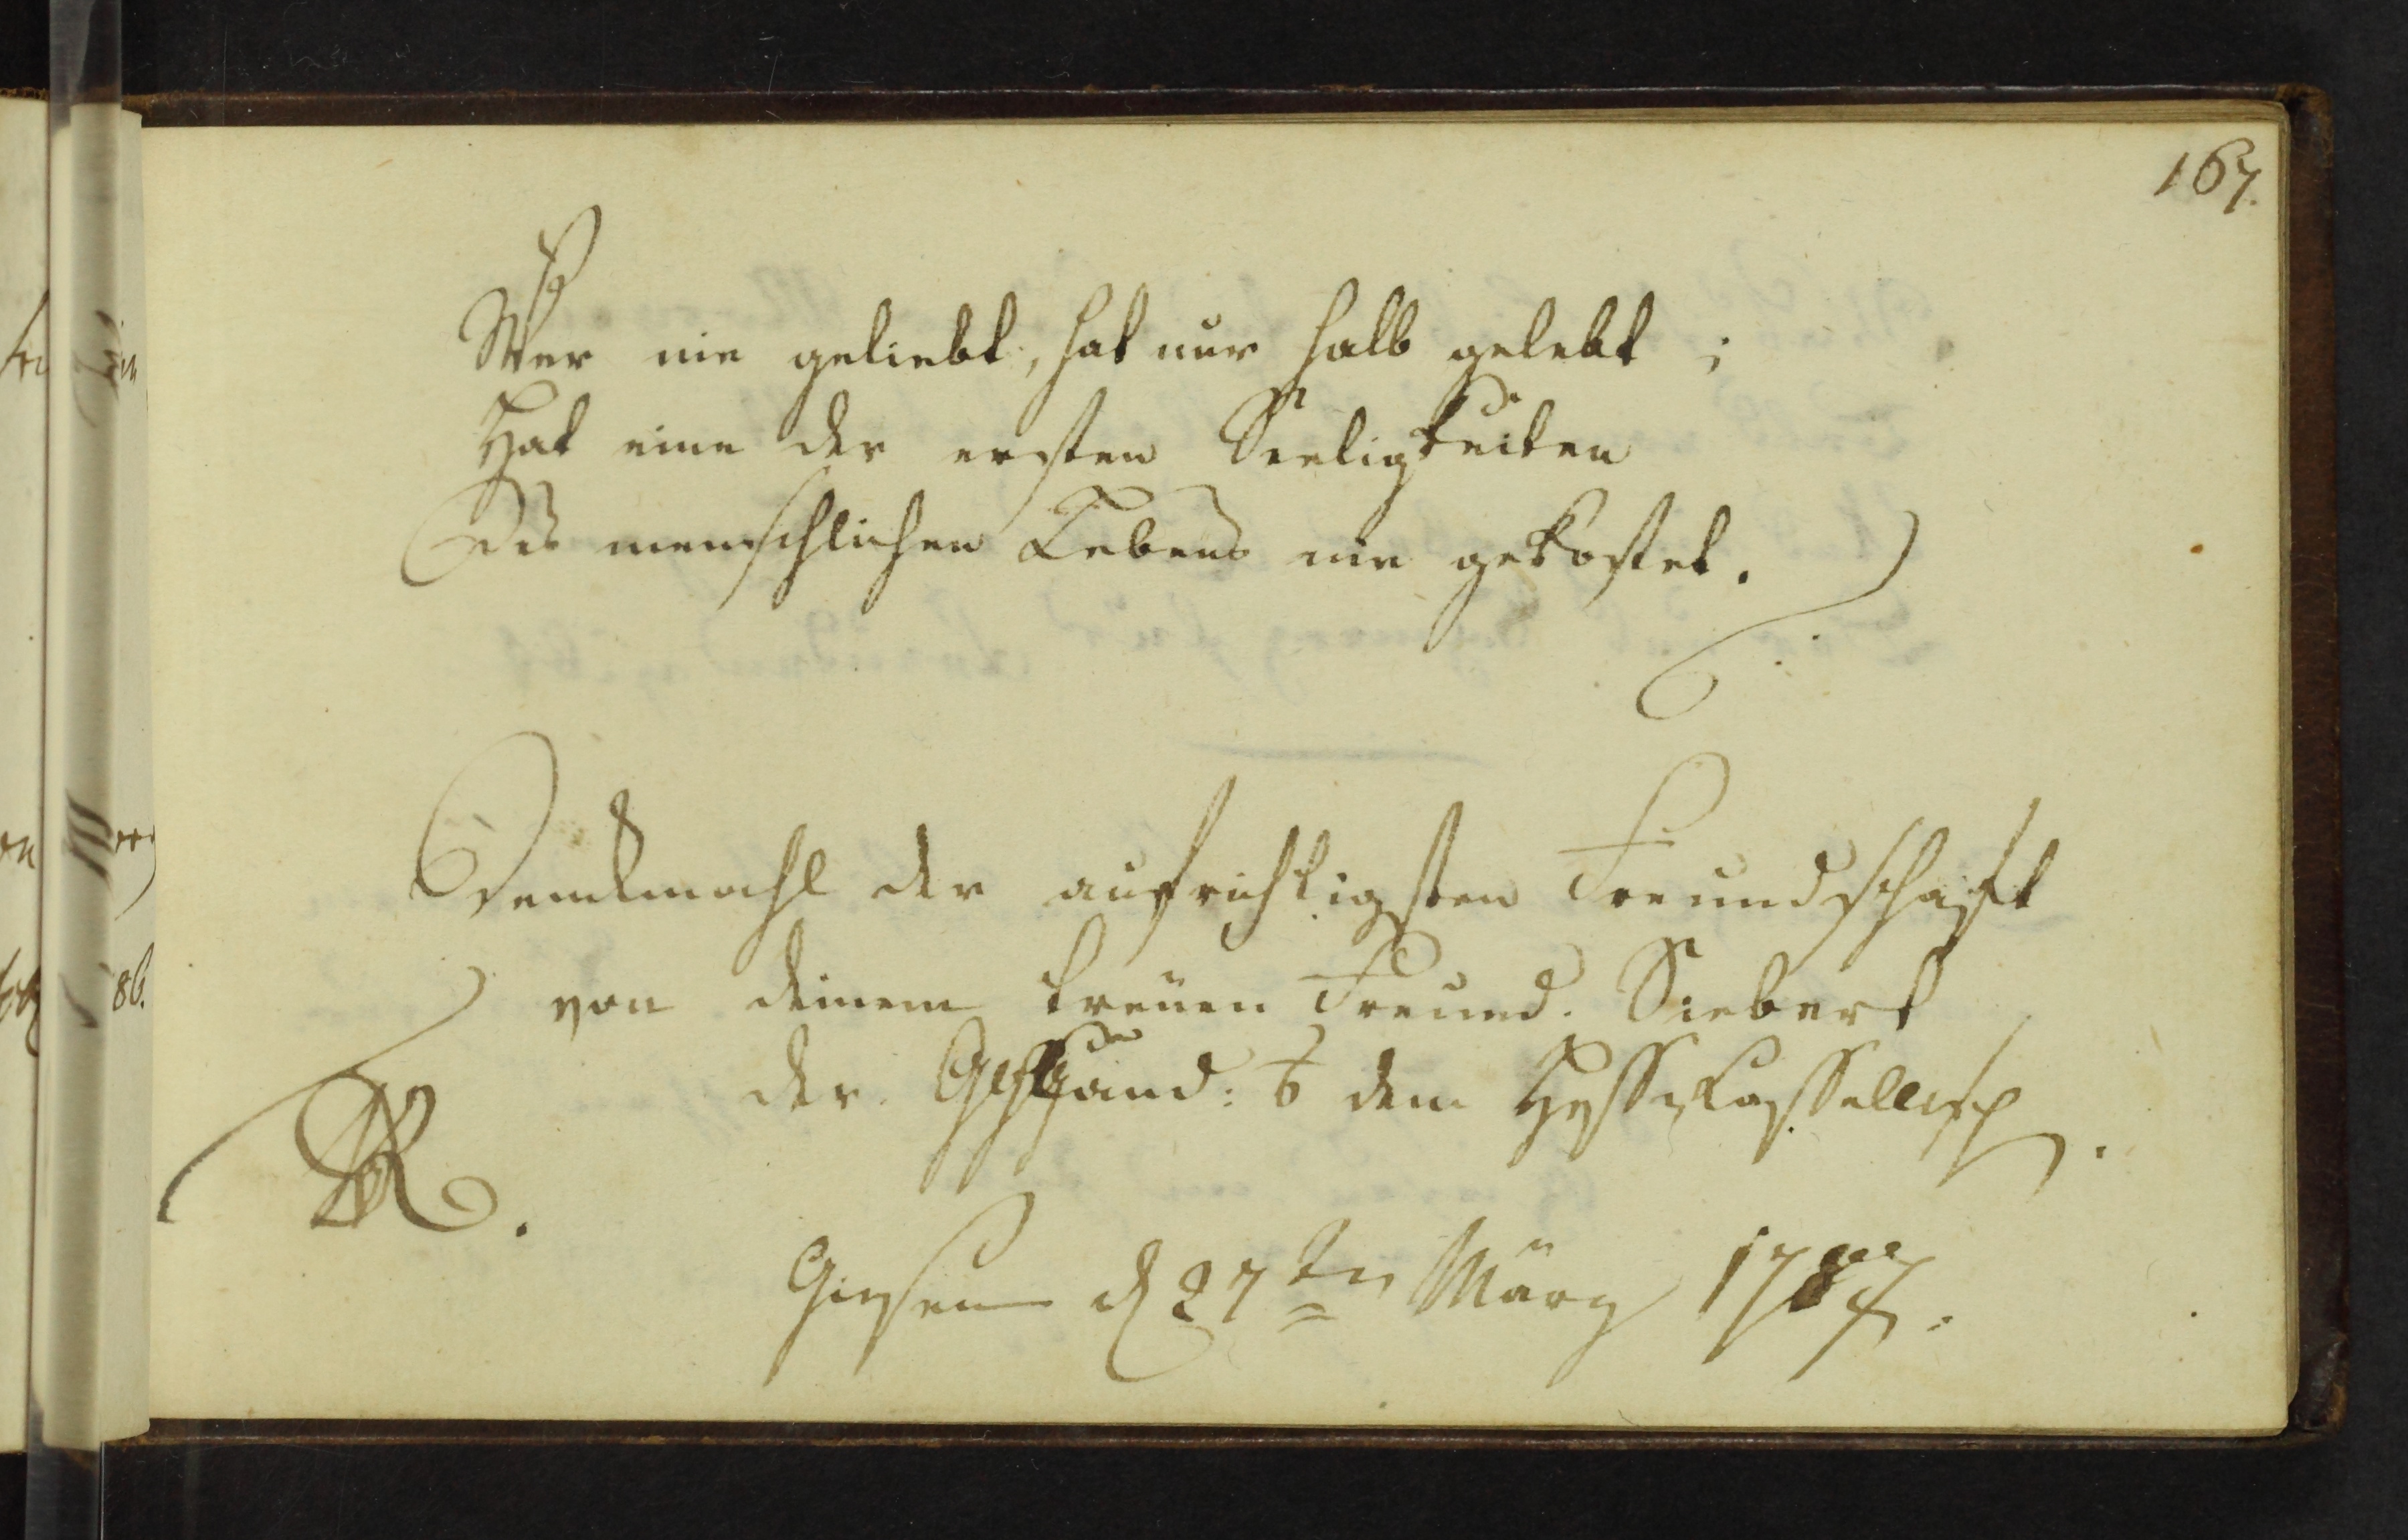 167.
Wer nie geliebt, hat nur halb gelebt ;
Hat eine der ersten Seeligkeiten
Des menschlichen Lebens nie gekostet.
Denkmahl der aufrichtigsten Freundschaft
von deinem treuen Freund. Siebert
der dem
Giesen d 27ten März 1787.